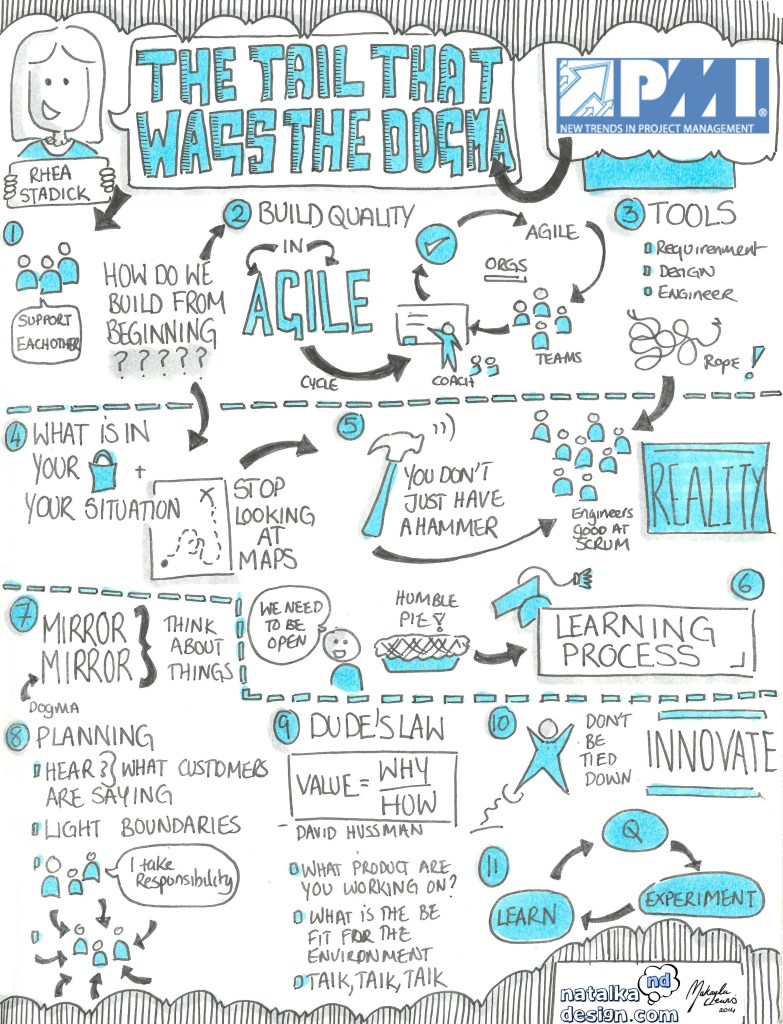 THE TAIL THAT
WAGS THE DOGMA
RHEA
STADICK
PMI®
NEW TRENDS IN PROJECT MANAGEMENT
1
SUPPORT
EACHOTHER
HOW DO WE
BUILD FROM
BEGINNING
? ? ? ? ?
2 BUILD QUALITY
IN
AGILE
CYCLE
COACH
TEAMS
ORGS
AGILE
3 TOOLS
Requirenment
DESIGN
Engineer
ROPE!
4 WHAT IS IN
YOUR +
YOUR SITUATION
STOP
LOOKING
AT
MAPS
5
YOU DON'T
JUST HAVE
A HAMMER
Engineers
Good AT
SCRUM
REALITY
6
WE NEED
TO BE
OPEN
HUMBLE
PIE!
LEARNING
PROCESS
7
MIRROR
MIRROR
THINK
ABOUT
THINGS
DOGMA
8 PLANNING
HEAR WHAT CUSTOMERS
ARE SAYING
LIGHT BOUNDARIES
I take
Responsibility
9 DUDE'S LAW
VALUE = WHY
HOW
DAVID HUSSMAN
WHAT PRODUCT ARE
YOU WORKING ON?
WHAT IS THE BE
FIT FOR THE
ENVIRONMENT
TAlK, TAlK, TAlK
10
DON'T
BE
TIED
DOWN
INNOVATE
11
Q
EXPERIMENT
LEARN
natalka nd
design.com
Makayla
Lewis
2014